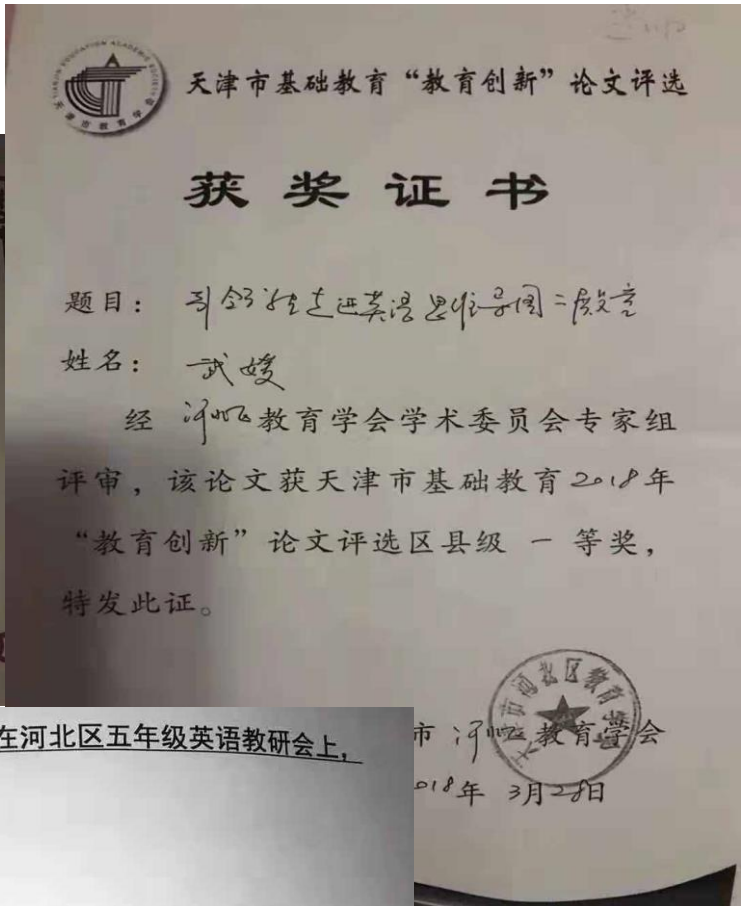 天津市教育学会
天津市基础教育“教育创新”论文评选
获奖证书
题目：
姓名：武媛
经 河北区教育学会学术委员会专家组
评审，该论文获天津市基础教育2018年
“教育创新”论文评选区县级 一 等奖，
特发此证。
天津市河北区教育学会
市 河北区教育学会
018年 3月28日
在河北区五年级英语教研会上，